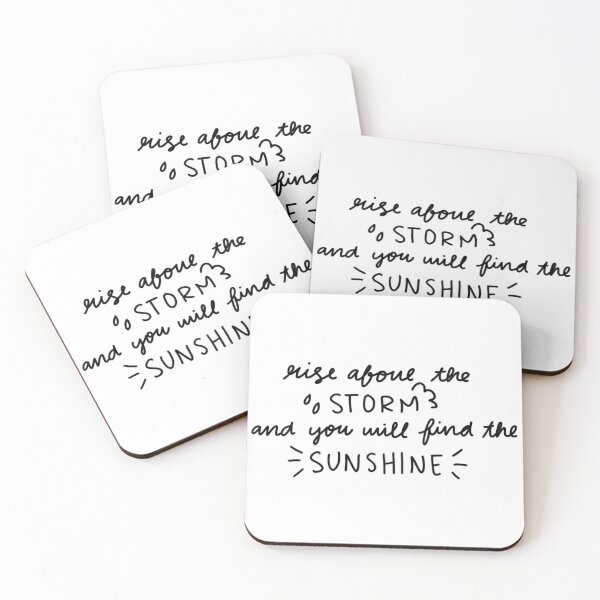 rise above the
STORM
and find
rise above the
STORM
and you will find the
SUNSHINE
rise above the
STORM
and you will find the
SUNSHINE
rise above the
STORM
and you will find the
SUNSHINE